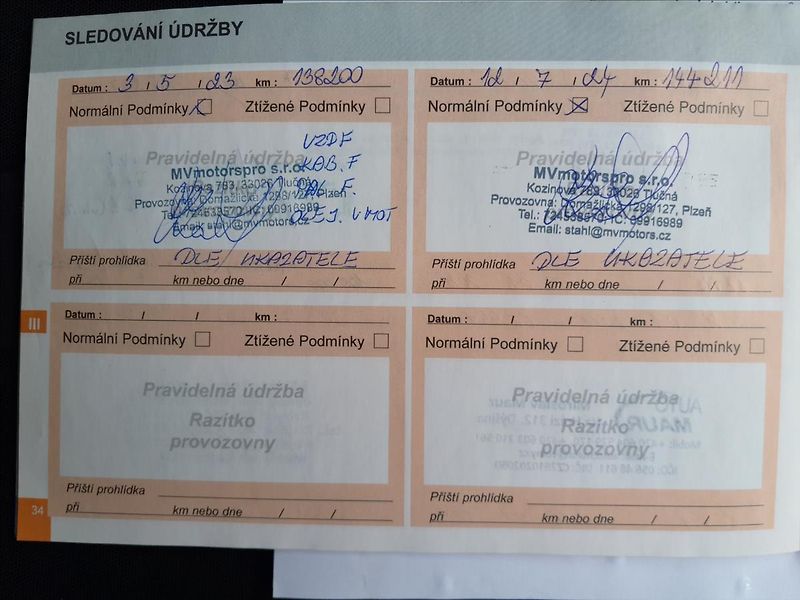 SLEDOVÁNÍ ÚDRŽBY
Datum : 3 / 5 / 23 km : 138200
Normální Podmínky Ztížené Podmínky
Pravidelná údržba
VZDF
KAB. F
MVmotorspro s.r.o.
Kozinova 783, 33026 Tlučná
Provozovna: Domažlická 1298/127, Plzeň
OLEJ. V MOT
Email: stahl@mvmotors.cz
Příští prohlídka DLE UKAZATELE
při km nebo dne / /
Datum : 12 / 7 / 24 km : 144211
Normální Podmínky Ztížené Podmínky
Pravidelná údržba
MVmotorspro s.r.o.
Kozinova 783, 33026 Tlučná
Provozovna: Domažlická 1298/127, Plzeň
IC: 09916989
Email: stahl@mvmotors.cz
Příští prohlídka DLE UKAZATELE
při km nebo dne / /
III
Datum : / / km :
Normální Podmínky Ztížené Podmínky
Pravidelná údržba
Razítko
provozovny
Příští prohlídka
při km nebo dne / /
Datum : / / km :
Normální Podmínky Ztížené Podmínky
Pravidelná údržba
Razítko
provozovny
Příští prohlídka
při km nebo dne / /
34